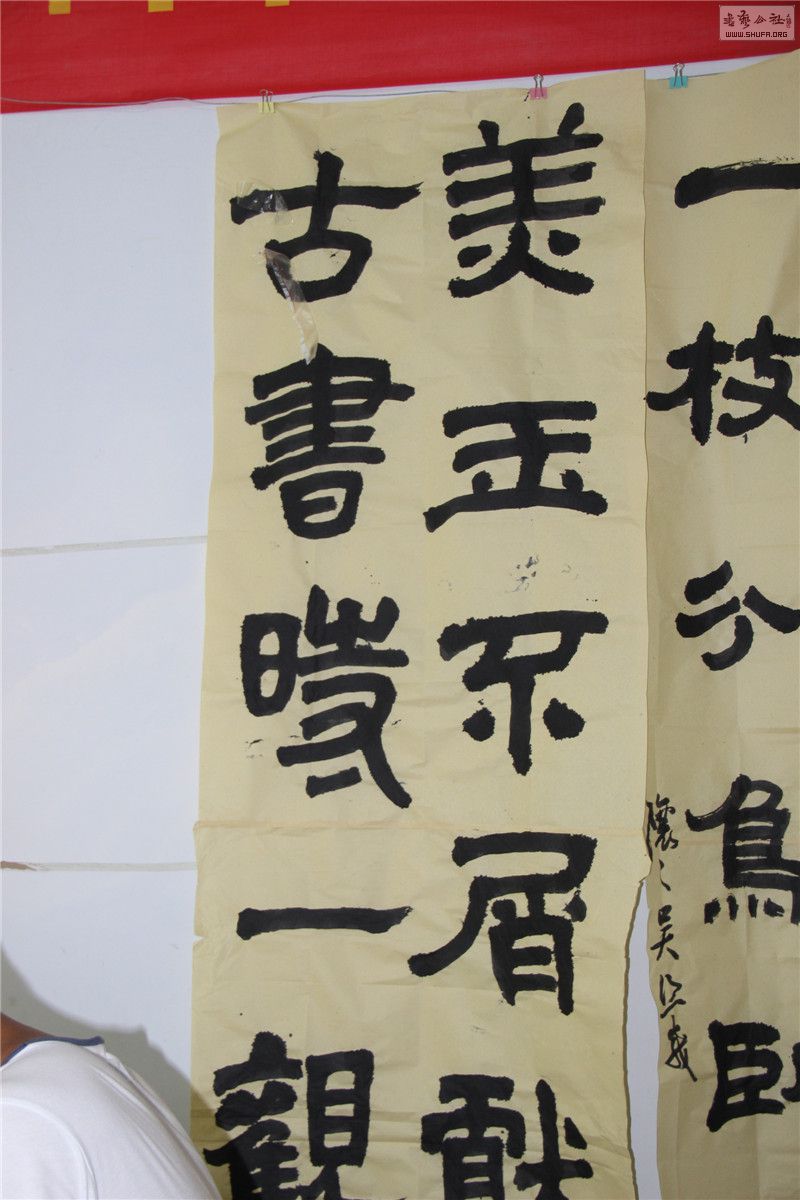 一枝分鳥臥
美玉不屑獻
古書時一觀
書藝公社
WWW.SHUFA.ORG